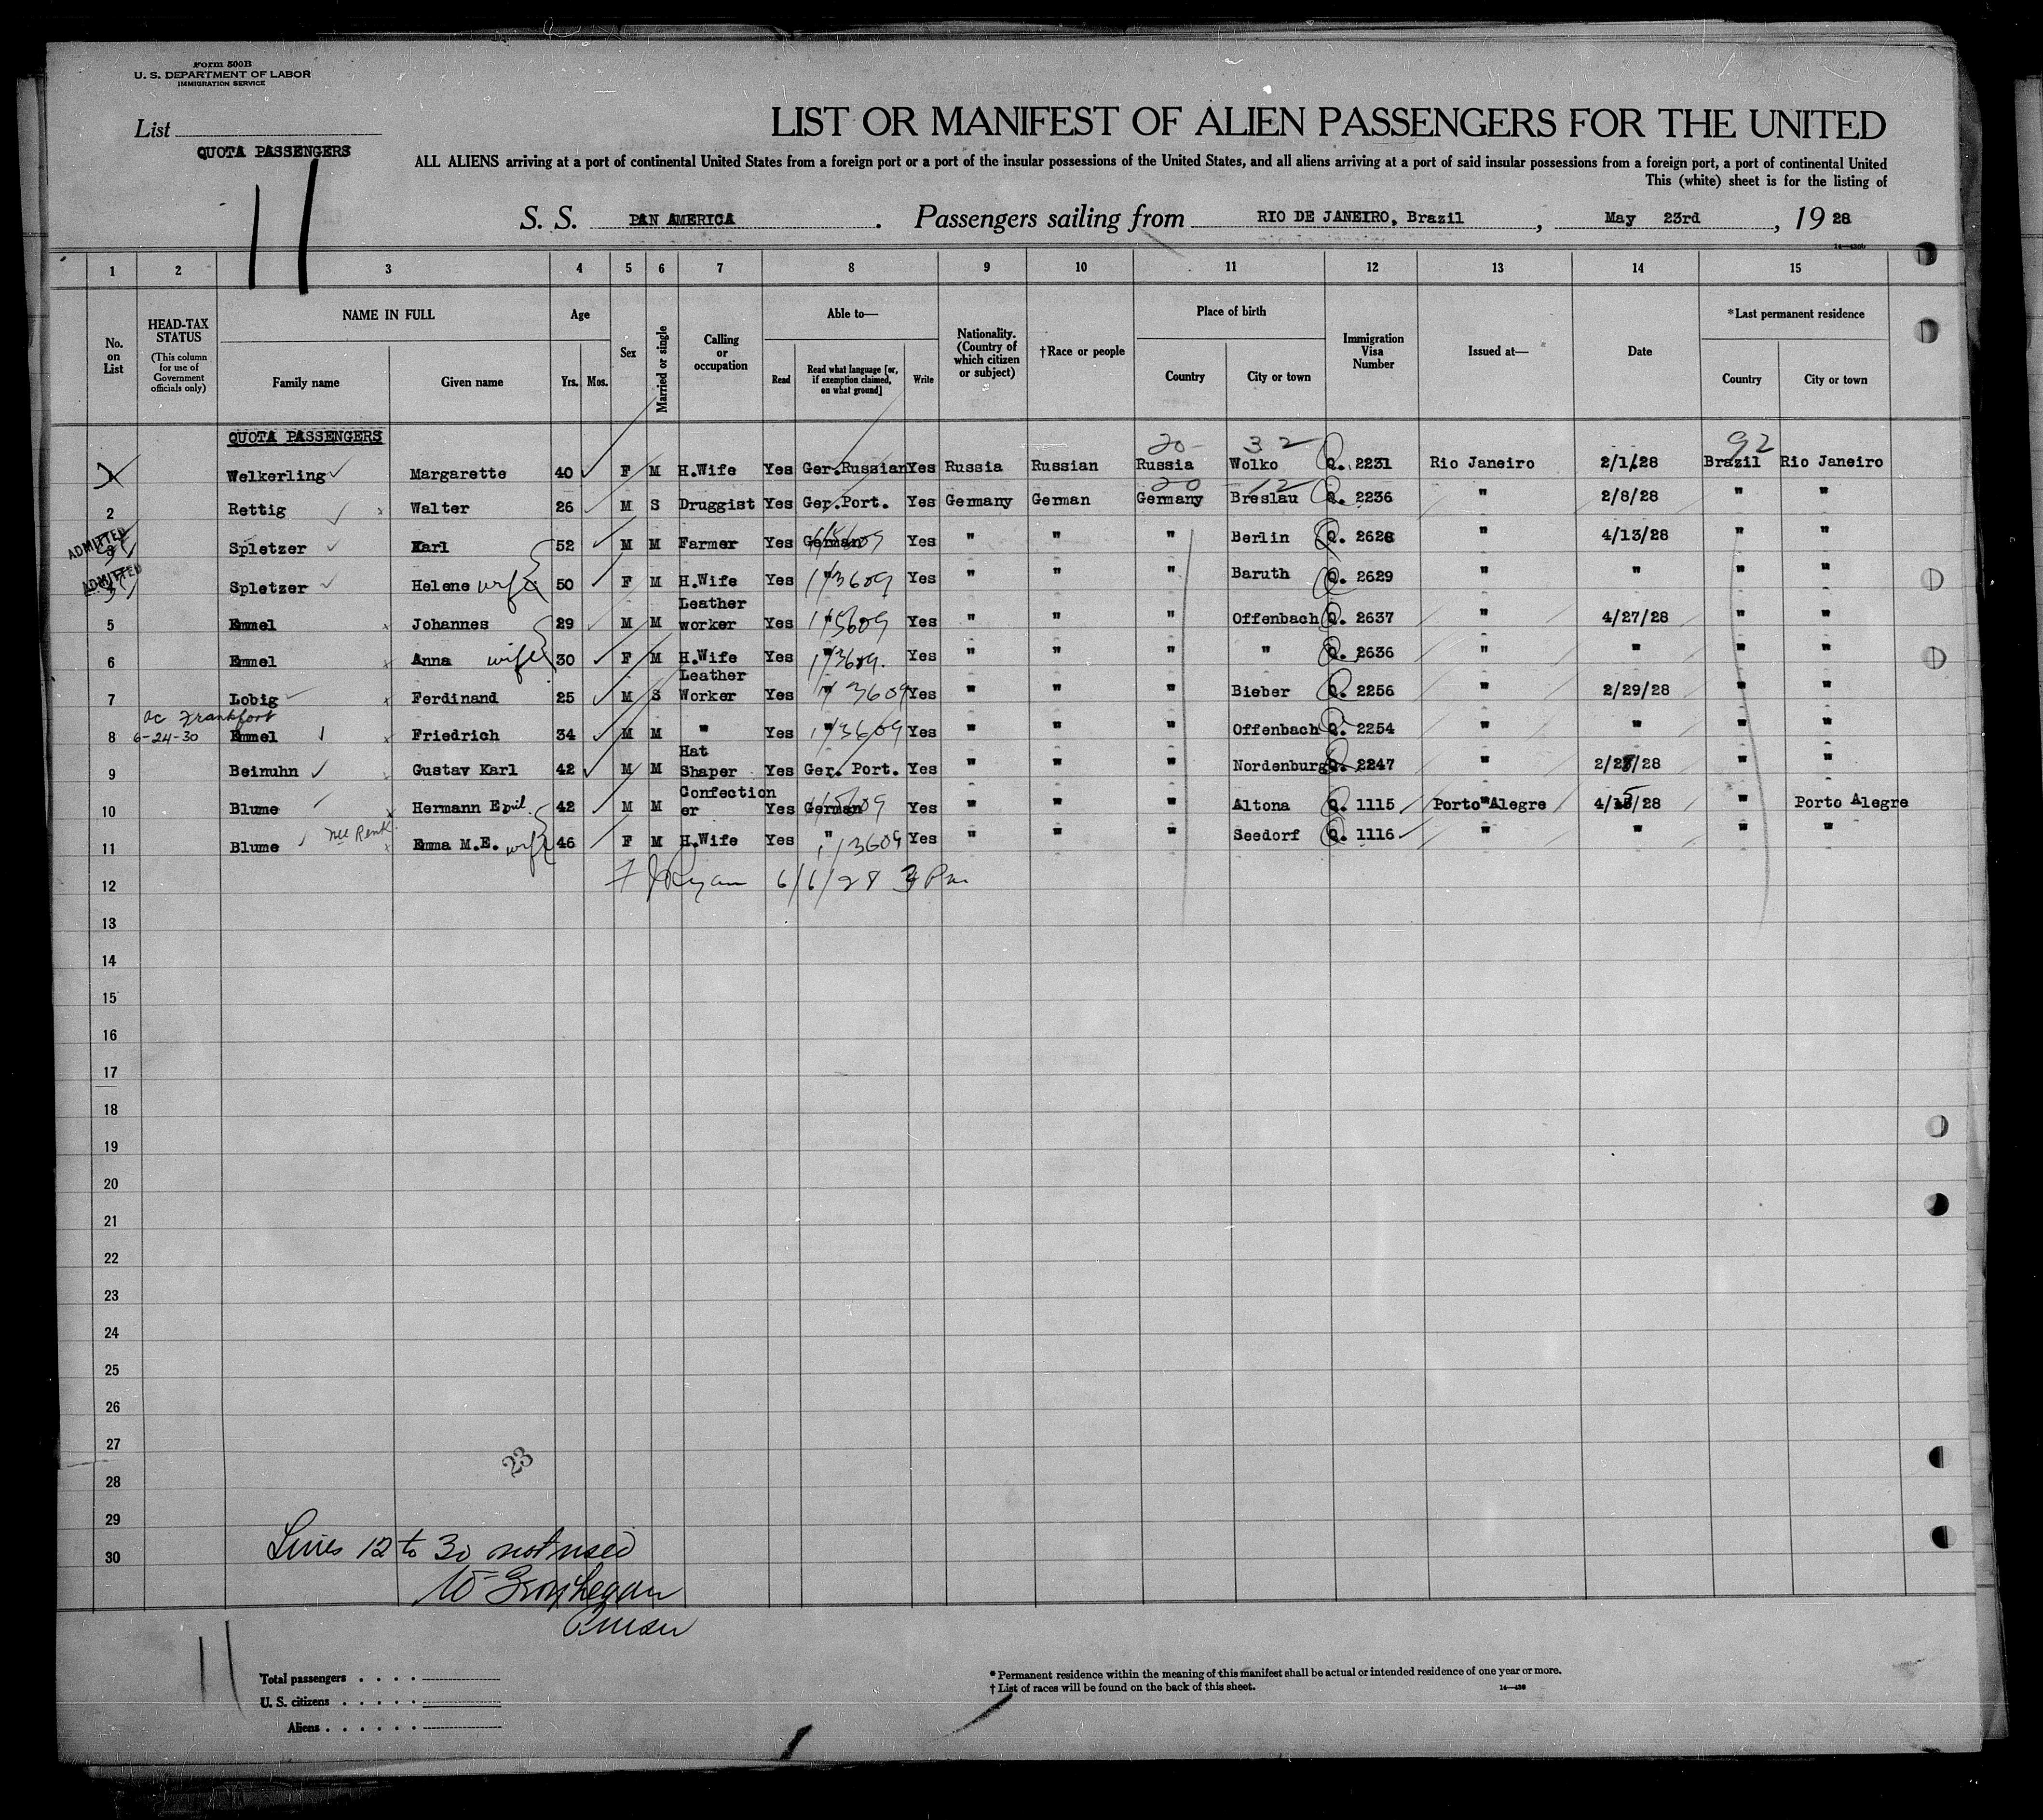 Form 500B
U. S. DEPARTMENT OF LABOR
IMMIGRATION SERVICE
List
QUOTA PASSENGERS
11
LIST OR MANIFEST OF ALIEN PASSENGERS FOR THE UNITED
ALL ALIENS arriving at a port of continental United States from a foreign port or a port of the insular possessions of the United States, and all aliens arriving at a port of said insular possessions from a foreign port, a port of continental United
This (white) sheet is for the listing of
S. S. PAN AMERICA. Passengers sailing from RIO DE JANEIRO, Brazil, May 23rd, 1928
1 2 3 4 5 6 7 8 9 10 11 12 13 14 15
No. on List
HEAD-TAX STATUS
(This column for use of Government officials only)
NAME IN FULL
Family name Given name
Age
Yrs. Mos.
Sex
Married or single
Calling or occupation
Able to—
Read
Read what language [or, if exemption claimed, on what ground]
Write
Nationality. (Country of which citizen or subject)
†Race or people
Place of birth
Country City or town
Immigration Visa Number
Issued at—
Date
*Last permanent residence
Country City or town
QUOTA PASSENGERS
20 32 92
Welkerling Margarette 40 F M H.Wife Yes Ger.Russian Yes Russia Russian Russia Wolko Q. 2231 Rio Janeiro 2/1/28 Brazil Rio Janeiro
20 12
2 Rettig Walter 26 M S Druggist Yes Ger.Port. Yes Germany German Germany Breslau Q. 2236 " 2/8/28 " "
ADMITTED
3 Spletzer Karl 52 M M Farmer Yes German Yes " " " Berlin Q. 2628 " 4/13/28 " "
ADMITTED
Spletzer Helene wife 50 F M H.Wife Yes " Yes " " " Baruth Q. 2629 " " " "
5 Emmel Johannes 29 M M Leather worker Yes " Yes " " " Offenbach Q. 2637 " 4/27/28 " "
6 Emmel Anna wife 30 F M H.Wife Yes " Yes " " " " Q. 2636 " " " "
7 Lobig Ferdinand 25 M S Leather Worker Yes " Yes " " " Bieber Q. 2256 " 2/29/28 " "
ac Frankfort
8 6-24-30 Emmel Friedrich 34 M M " Yes " Yes " " " Offenbach Q. 2254 " " " "
9 Beinuhn Gustav Karl 42 M M Hat Shaper Yes Ger. Port. Yes " " " Nordenburg Q. 2247 " 2/28/28 " "
10 Blume Hermann Emil 42 M M Confection er Yes German Yes " " " Altona Q. 1115 Porto Alegre 4/15/28 " Porto Alegre
11 Blume nee Renk Emma M.E. wife 46 F M H.Wife Yes " Yes " " " Seedorf Q. 1116 " " " "
12 F J Ryan 6/6/28 3 Pm
13
14
15
16
17
18
19
20
21
22
23
24
25
26
27
28
29
30
23
Lines 12 to 30 not used
11
Total passengers
U. S. citizens
Aliens
* Permanent residence within the meaning of this manifest shall be actual or intended residence of one year or more.
† List of races will be found on the back of this sheet.
14—430